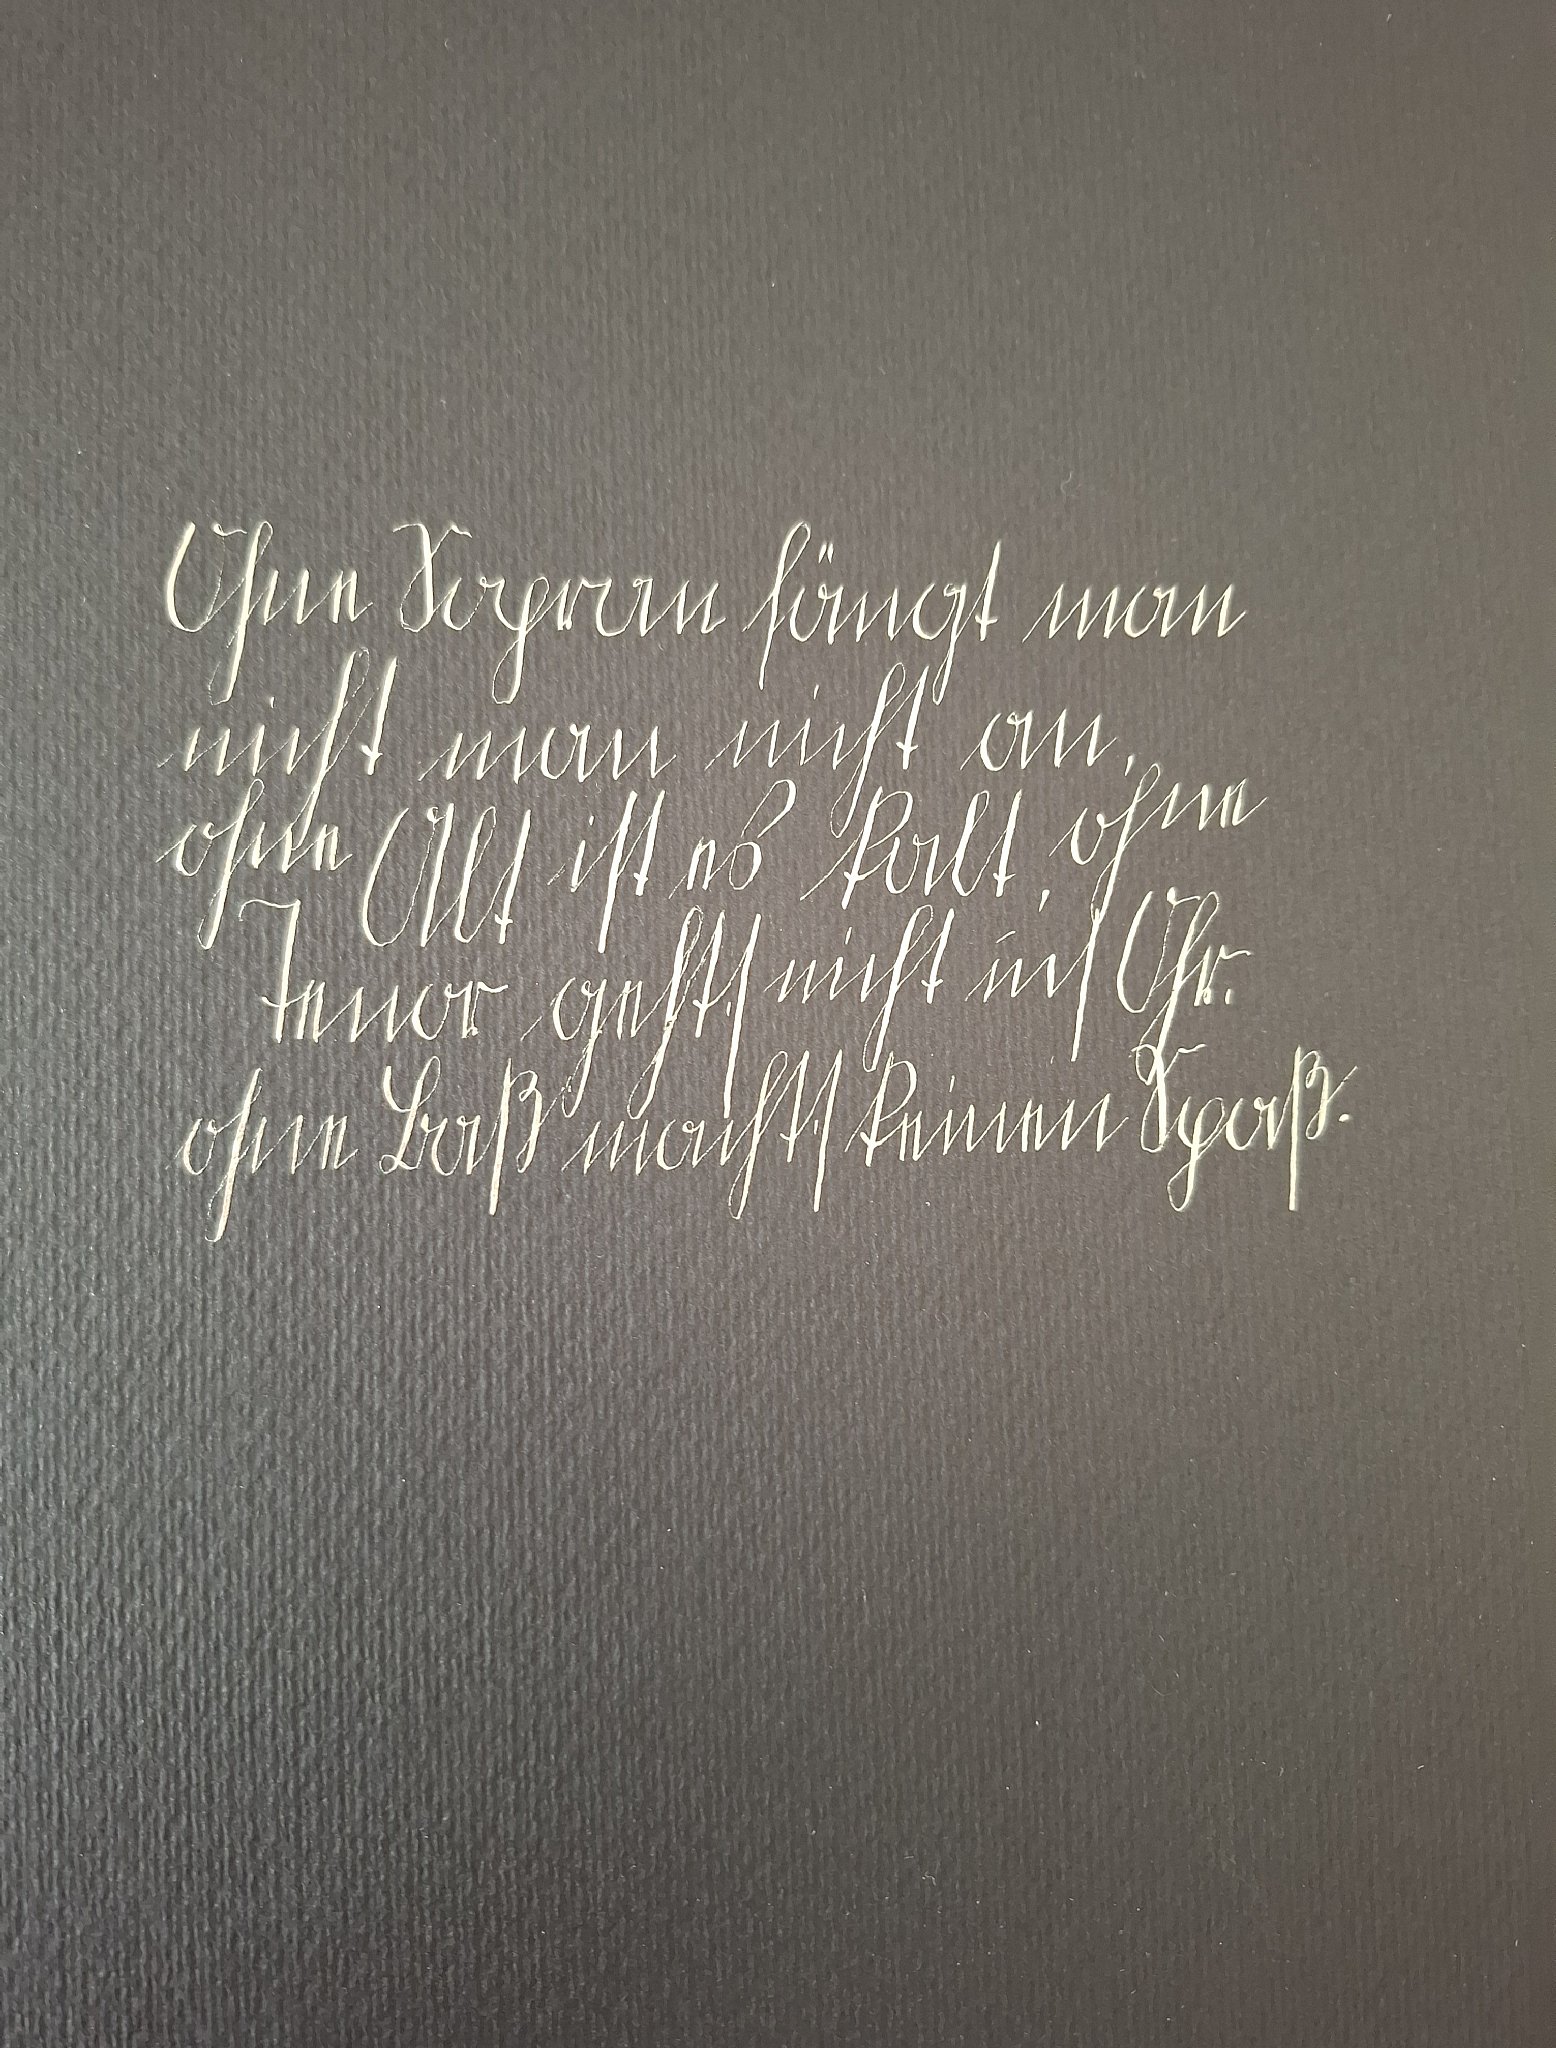 Ohne Sopran fängt man
nicht man nicht an,
ohne Alt ist es kalt, ohne
Tenor gehts nicht ins Ohr.
ohne Baß machts keinen Spaß.